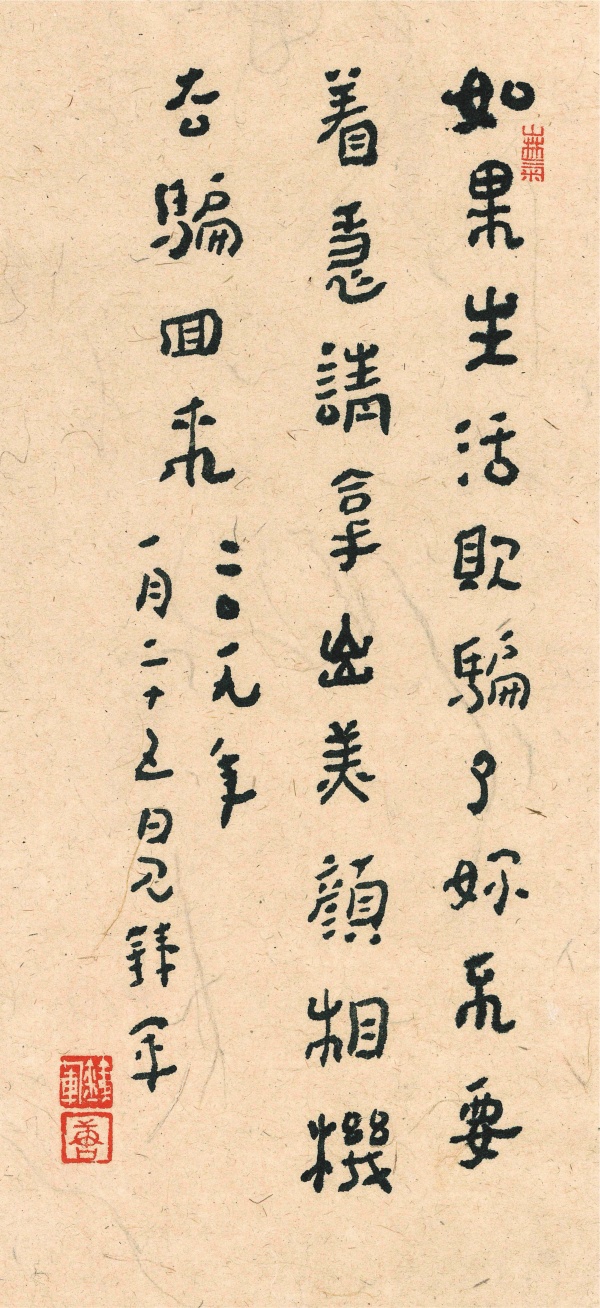 如果生活欺騙了妳不要
着急請拿出美顏相機
去騙回來
二〇一九年
一月二十五日